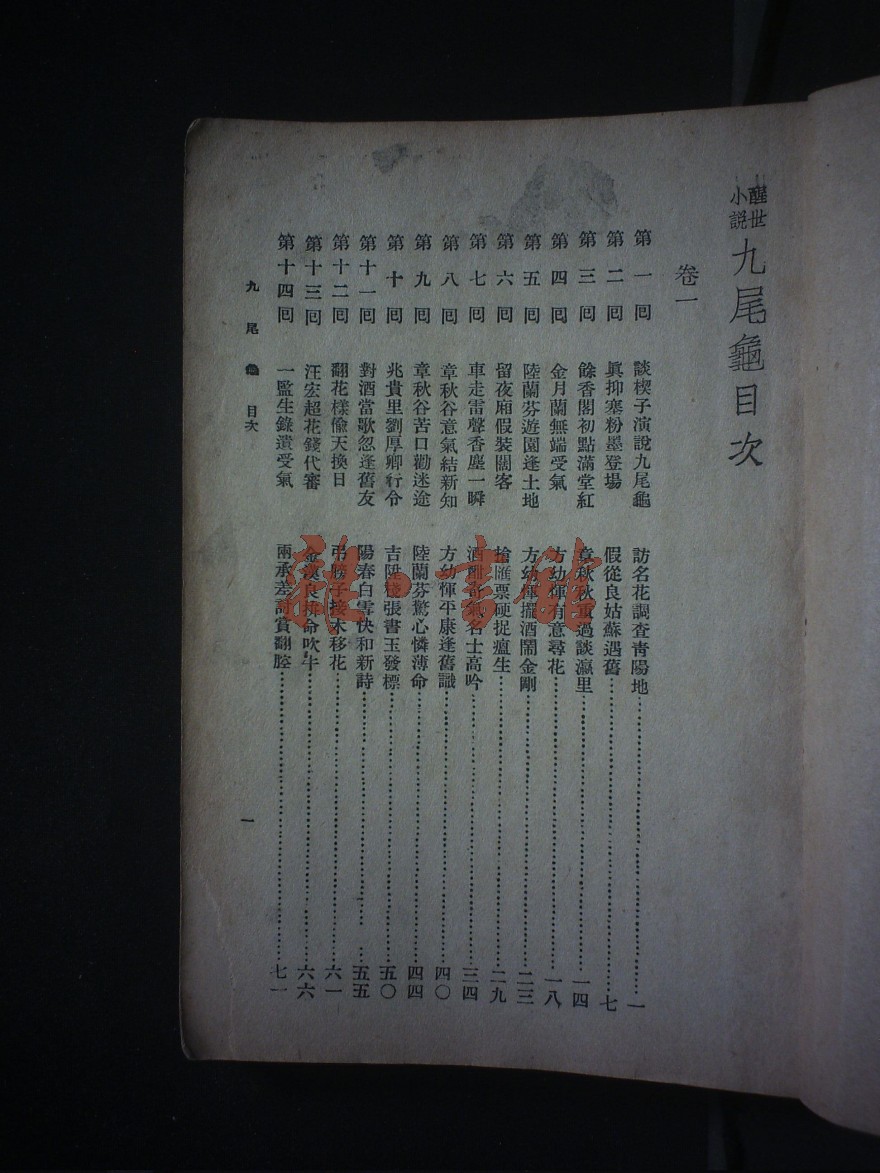 醒世小說 九尾龜目次
卷一
第一回 談楔子演說九尾龜 訪名花調查青陽地 一
第二回 眞抑塞粉墨登場 假從良姑蘇遇舊 七
第三回 餘香閣初點滿堂紅 章秋秋重過談瀛里 一四
第四回 金月蘭無端受氣 方幼惲有意尋花 一八
第五回 陸蘭芬遊園逢土地 方幼惲擺酒鬧金剛 二三
第六回 留夜廂假裝闊客 搶匯票硬捉瘟生 二九
第七回 車走雷聲香塵一瞬 酒酣奇氣名士高吟 三四
第八回 章秋谷意氣結新知 方幼惲平康逢舊識 四〇
第九回 章秋谷苦口勸迷途 陸蘭芬驚心憐薄命 四四
第十回 兆貴里劉厚卿行令 吉陞棧張書玉發標 五〇
第十一回 對酒當歌忽逢舊友 陽春白雪快和新詩 五五
第十二回 翻花樣偸天換日 弔膀子接木移花 六一
第十三回 汪宏超花錢代審 金漢良拚命吹牛 六六
第十四回 一監生錄遺受氣 兩承差討賞翻腔 七一
九尾龜 目次
一